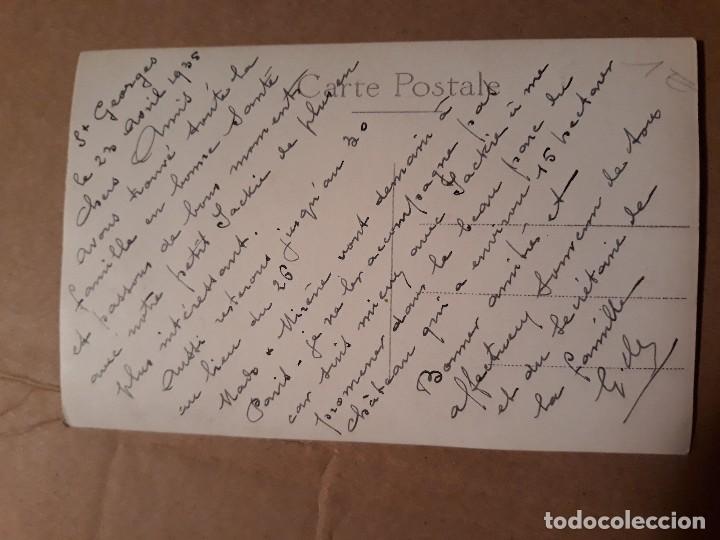 Carte Postale
St Georges
le 23 avril 1935
Chers Amis
avons trouvé toute la
famille en bonne santé
et passons de bons moments
avec notre petit Jackie de plus en
plus intéressant.
Aussi resterons jusqu'au 30
au lieu du 26
Mado & Mirène vont demain à
Paris - je ne les accompagne pas
car suis mieux avec Jackie à me
promener dans le beau parc du
château qui a environ 15 hectares
Bonnes amitiés et
affectueux souvenir de tous
et du secrétaire de
la famille
todocoleccion